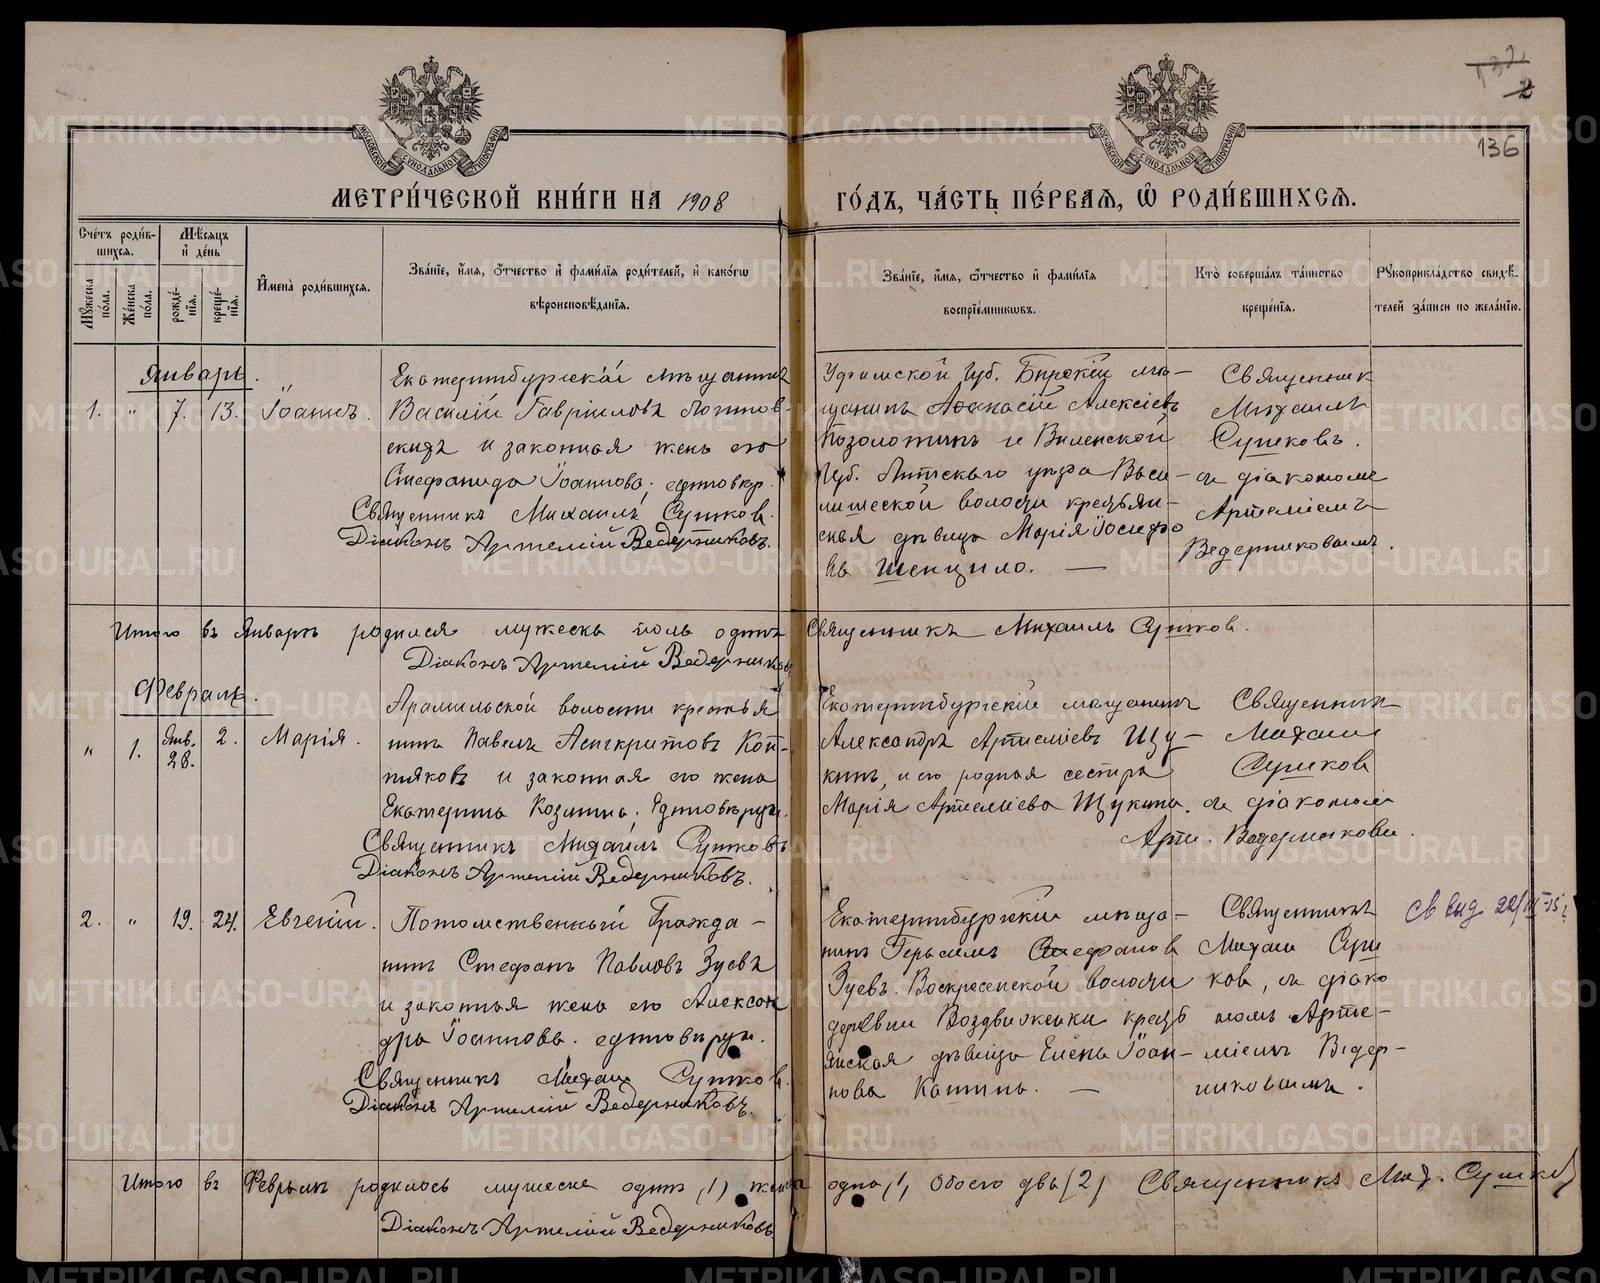 132
2
136
МЕТРИ́ЧЕСКОЙ КНИ́ГИ НА 1908
ГО́ДЪ, ЧА́СТЬ ПЕ́РВАЯ, Ѽ РОДИ́ВШИХСЯ.
Сче́тъ роди́в-
шихся.
Мѣ́сяцъ
и҆ де́нь
Му́жеска по́ла.
Же́нска по́ла.
рожде́-
нїѧ.
креще́-
нїѧ.
И҆мена̀ роди́вшихся.
Зва́нїе, и҆́мя, ѻ҆́тчество и҆ фами́лїя роди́телей, и҆ како́гѡ
вѣроисповѣ́данїя.
Зва́нїе, и҆́мя, ѻ҆́тчество и҆ фами́лїя
воспрїе́мникѡвъ.
Кто̀ соверша́лъ та́инство
креще́нїя.
Рꙋкоприкла́дство свидѣ́-
телей за́писи по жела́нїю.
Январь.
1. " 7. 13. Іоаннъ.
Екатеринбургскій мѣщанинъ
Василій Гавріиловъ
и законная жена его
Стефанида Іоаннова; единовѣр.
Священникъ Михаилъ Сушков.
Діаконъ Артемій Ведерниковъ.
Уфимской Губ. Бирскій мѣ-
щанинъ Аѳанасій Алексіевъ
Позолотинъ и Виленской
Губ. Лидскаго уѣзда Васи-
лишской волости крестьян-
ская дѣвица Марія Іосифо
ва Шенцило.
Священник
Михаилъ
Сушковъ.
съ діакономъ
Артеміемъ
Ведерниковымъ.
Итого въ Январѣ родился мужеска пола одинъ Священникъ Михаилъ Сушков.
Діаконъ Артемій Ведерниковъ
Февраль.
" 1. Янв. 28. 2. Марія.
Арамильской волости крестья
нинъ Павелъ Асигкритовъ Коп-
тяковъ и законная его жена
Екатерина Козмина; Единовѣрцы.
Священникъ Михаилъ Сушковъ
Діаконъ Артемій Ведерниковъ.
Екатеринбургскій мѣщанинъ
Александръ Артеміевъ Щу-
кинъ, и его родная сестра
Марія Артеміева Щукина.
Священник
Михаил
Сушков
съ діакономъ
Арт. Ведерниковым.
2. " 19. 24. Евгеній.
Потомственный Гражда-
нинъ Стефанъ Павловъ Зуевъ
и законная жена его Алексан
дра Іоаннова. единовѣрцы.
Священникъ Михаил Сушков.
Діаконъ Артемій Ведерниковъ.
Екатеринбургскій мѣща-
нинъ Герасимъ Стефанов
Зуевъ. Воскресенской волости
деревни Воздвиженки крест
янская дѣвица Елена Іоан-
нова Катина.
Священникъ
Михаил Суш
ков, съ діако
номъ Арте-
міемъ Ведер-
никовымъ.
Свид 22/III-15 г.
Итого въ Февралѣ родилось мужеска одинъ (1) женска одна (1) Обоего два (2) Священникъ Мих. Сушков
Діаконъ Артемій Ведерниковъ